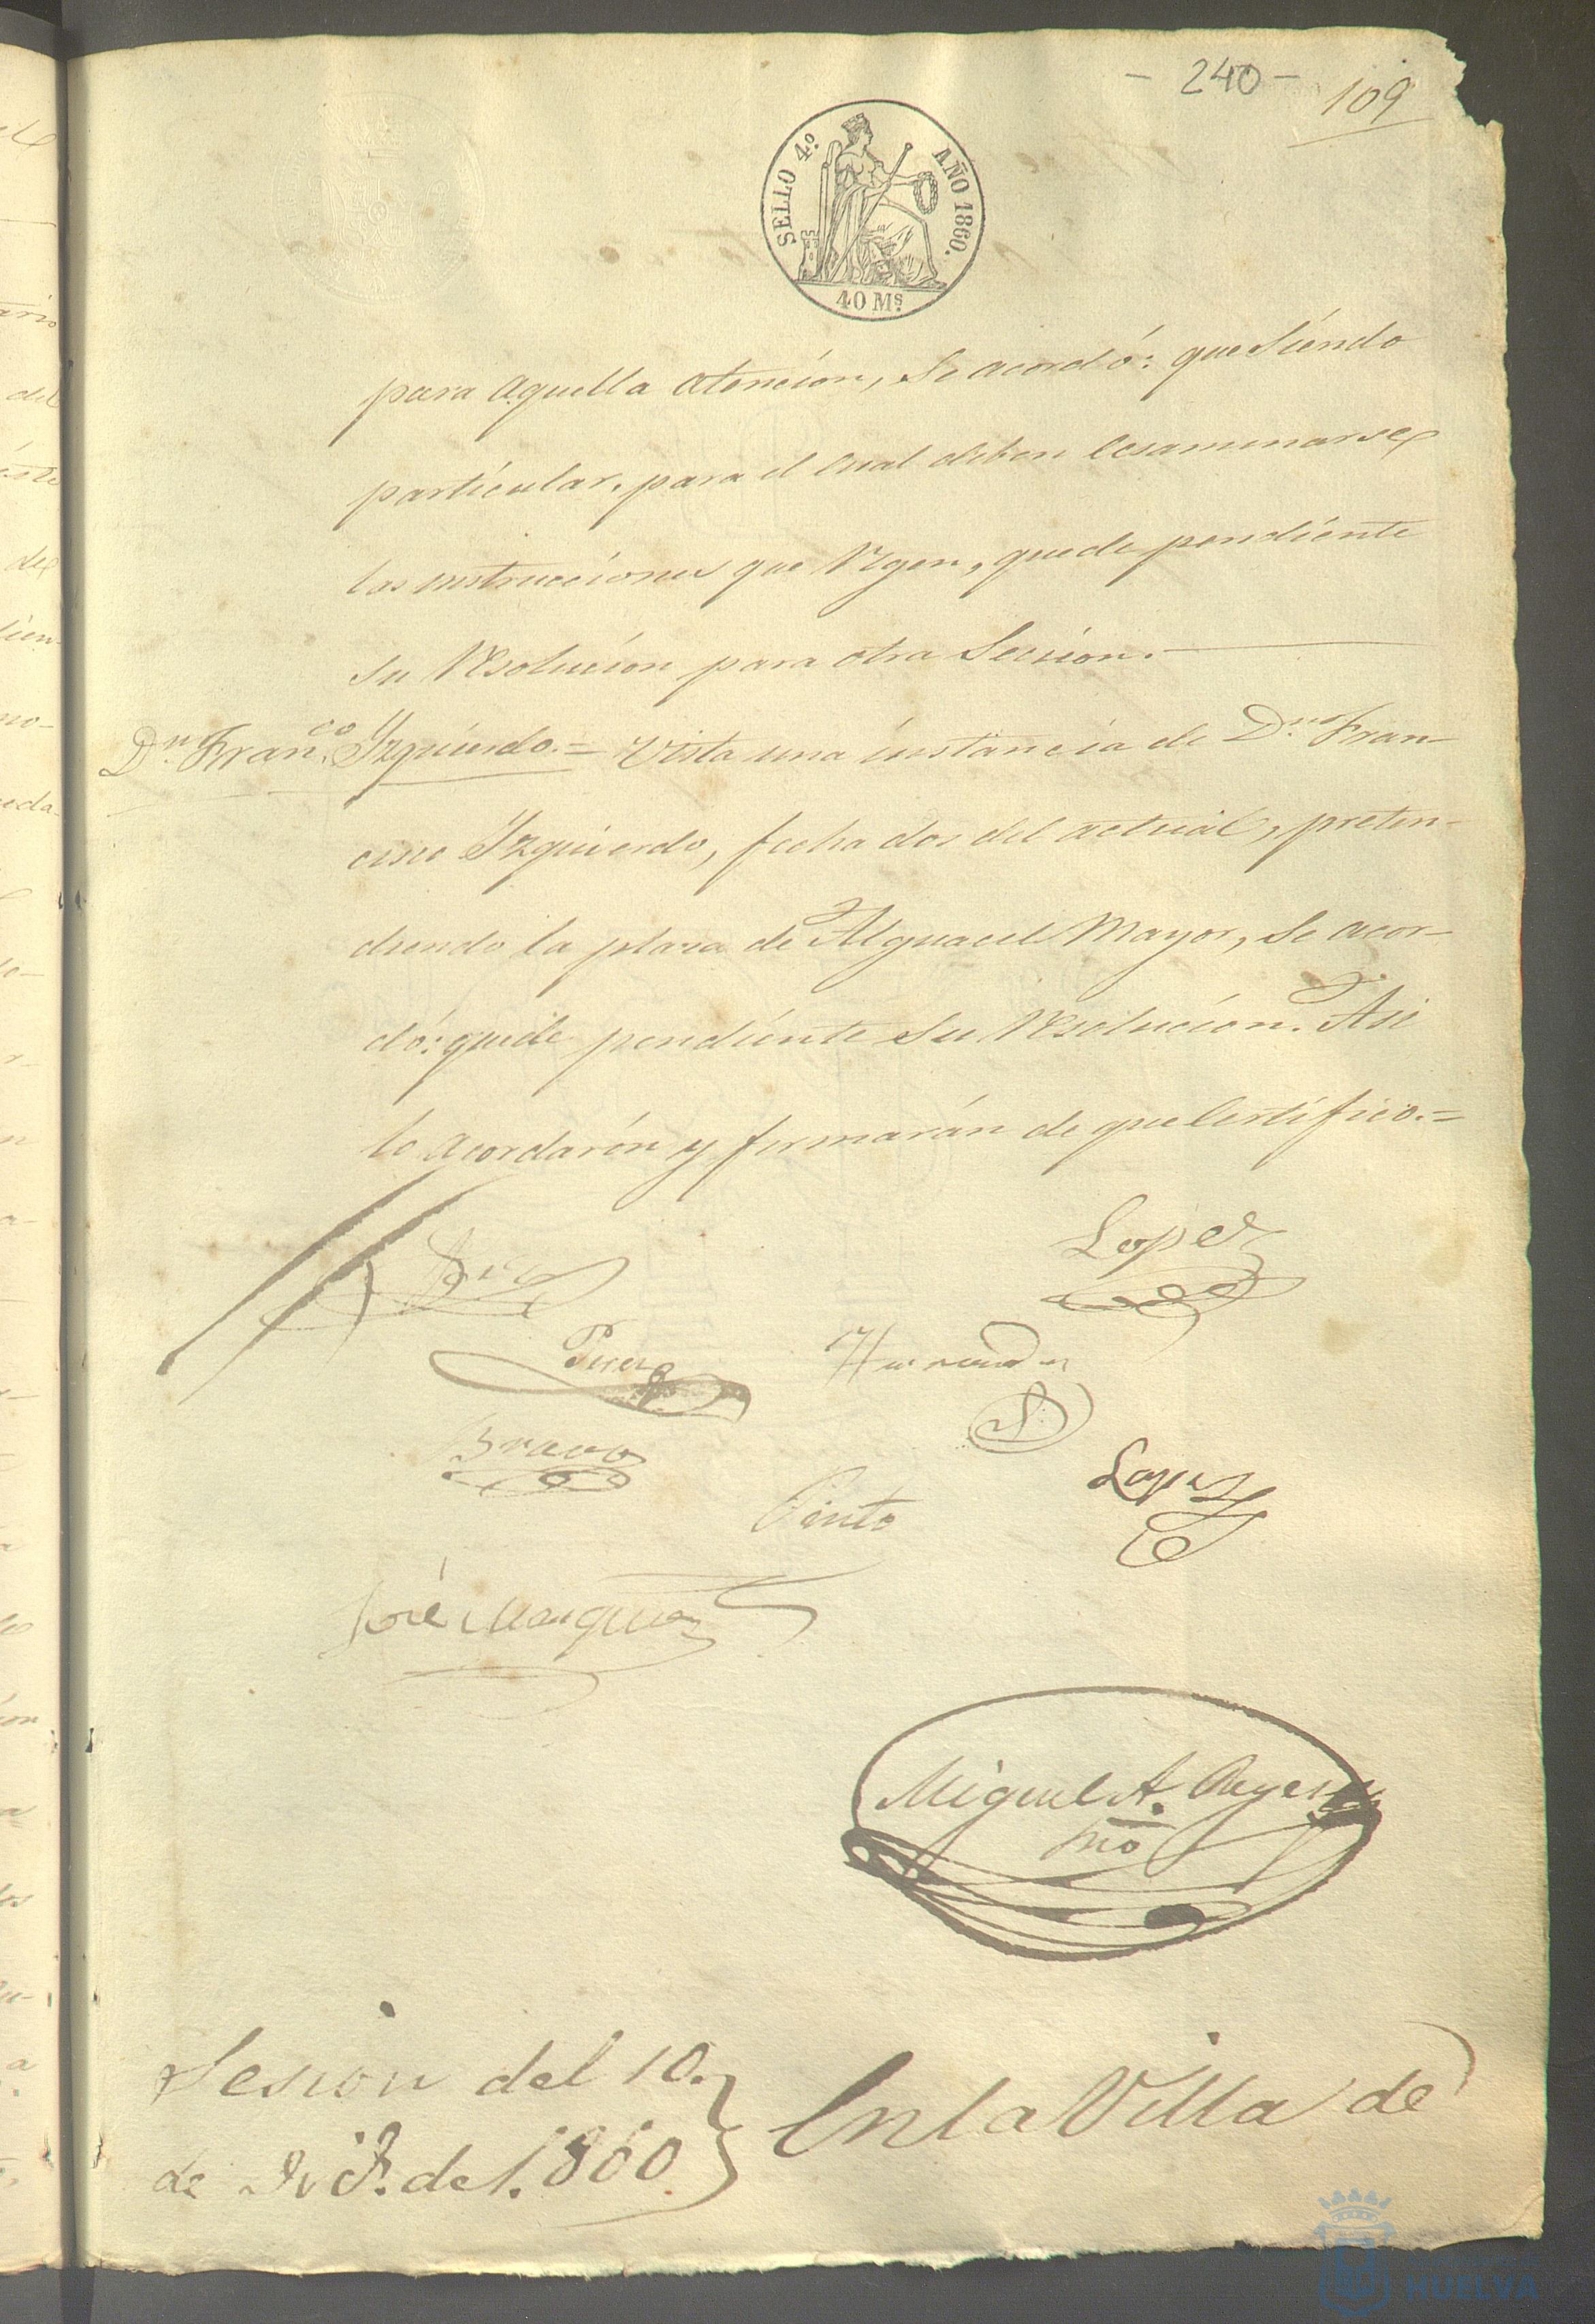 - 240 -
109
SELLO 4.º AÑO 1860.
40 Ms.
para aquella atencion, se acordó: que siendo
particular, para el cual deben ecsaminarse
las instrucciones que rigen, quede pendiente
su resolucion para otra Sesion.
Dn. Franco. Izquierdo. = Vista una instancia de Dn. Fran-
cisco Izquierdo, fecha dos del actual, preten-
diendo la plaza de Alguacil Mayor, se acor-
dó: quede pendiente su resolucion. Asi
lo acordarón y firmarán de que Certifico. =
Lopez
Perez
Hernandez
Bravo
Lopez
Pinto
José Marquez
Miguel A. Reyes
Srio
Sesion del 10.
de de 1.860
En la Villa de
HUELVA